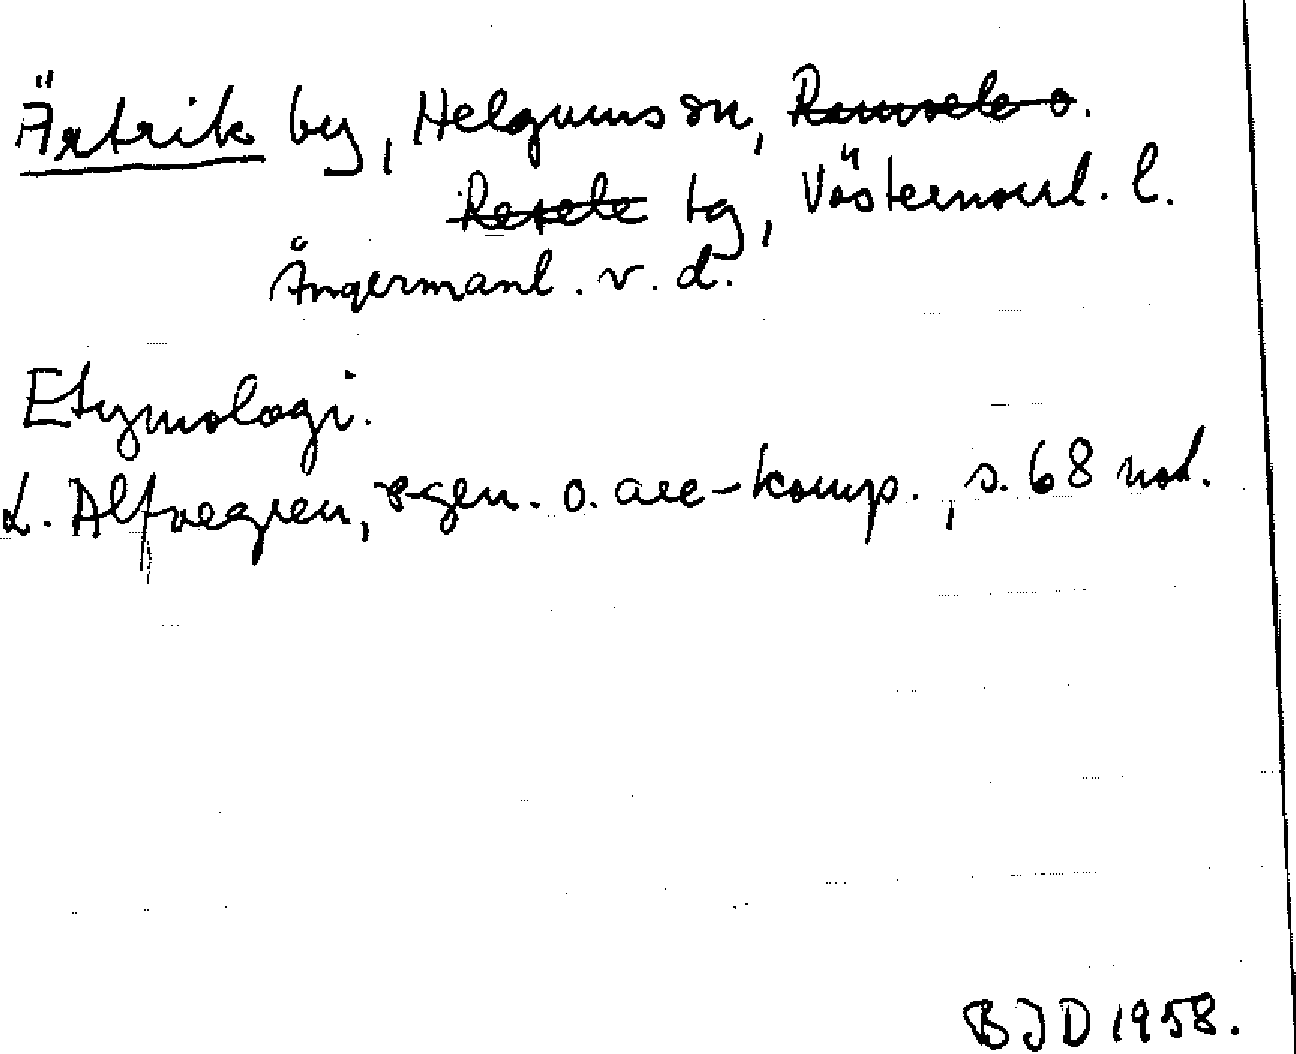 Ärtrik by, Helgums sn, Ramsele o.
Resele tg, Västernorrl. l.
Ångermanl. v. d.
Etymologi.
L. Alfvegren, r-gen. o. acc-komp., s. 68 not.
BJD 1958.